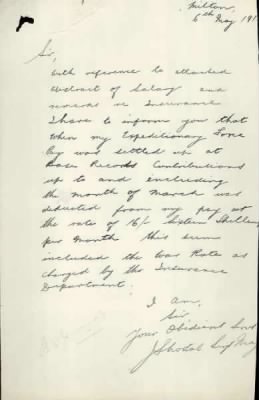 Milton,
6th May 191
Sir,
With reference to attached
abstract of Salary and
re Insurance
I have to inform you that
when my Expeditionary Force
Pay was settled up at
Base Records Contributions
up to and including
the month of March was
deducted from my pay at
the rate of 16/- Sixteen Shillings
per Month this sum
included the War Rate as
charged by the Insurance
Department.
I am,
Sir,
Your Obedient Servt